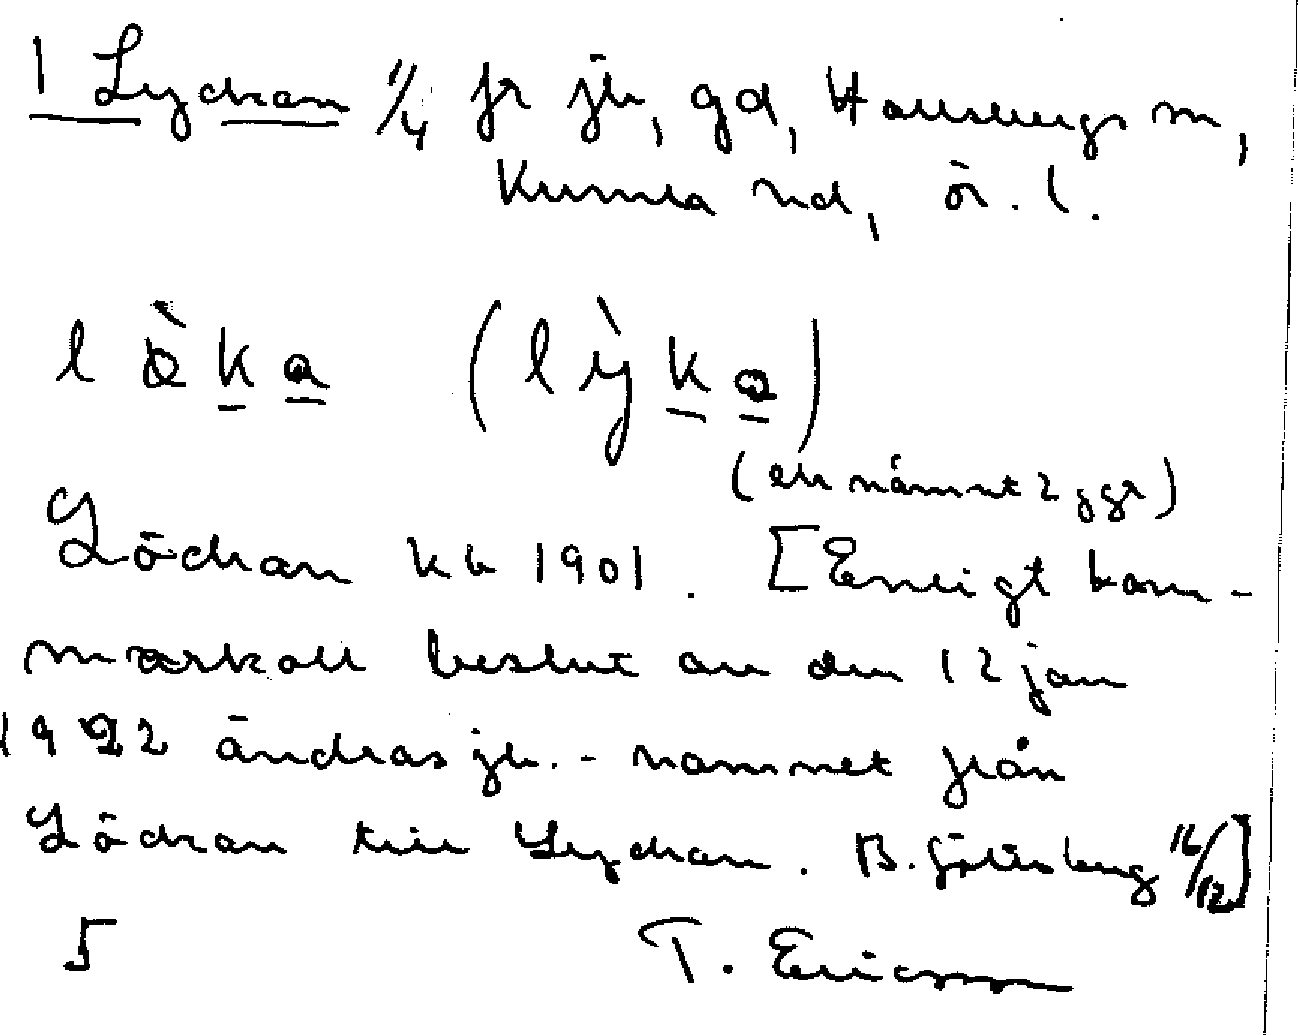 1 Lyckan 1/4 fr jb, gd, Hallsbergs sn,
Kumla hd, ör. l.
l ø̀ k a (l ỳ k a)
(ell nämnt 2 ggr)
Löckan kb 1901. [Enligt kam-
markoll beslut av den 12 jan
1922 ändras jb.-namnet från
Löckan till Lyckan. B. Götlind 16/12]
5 T. Ericsson